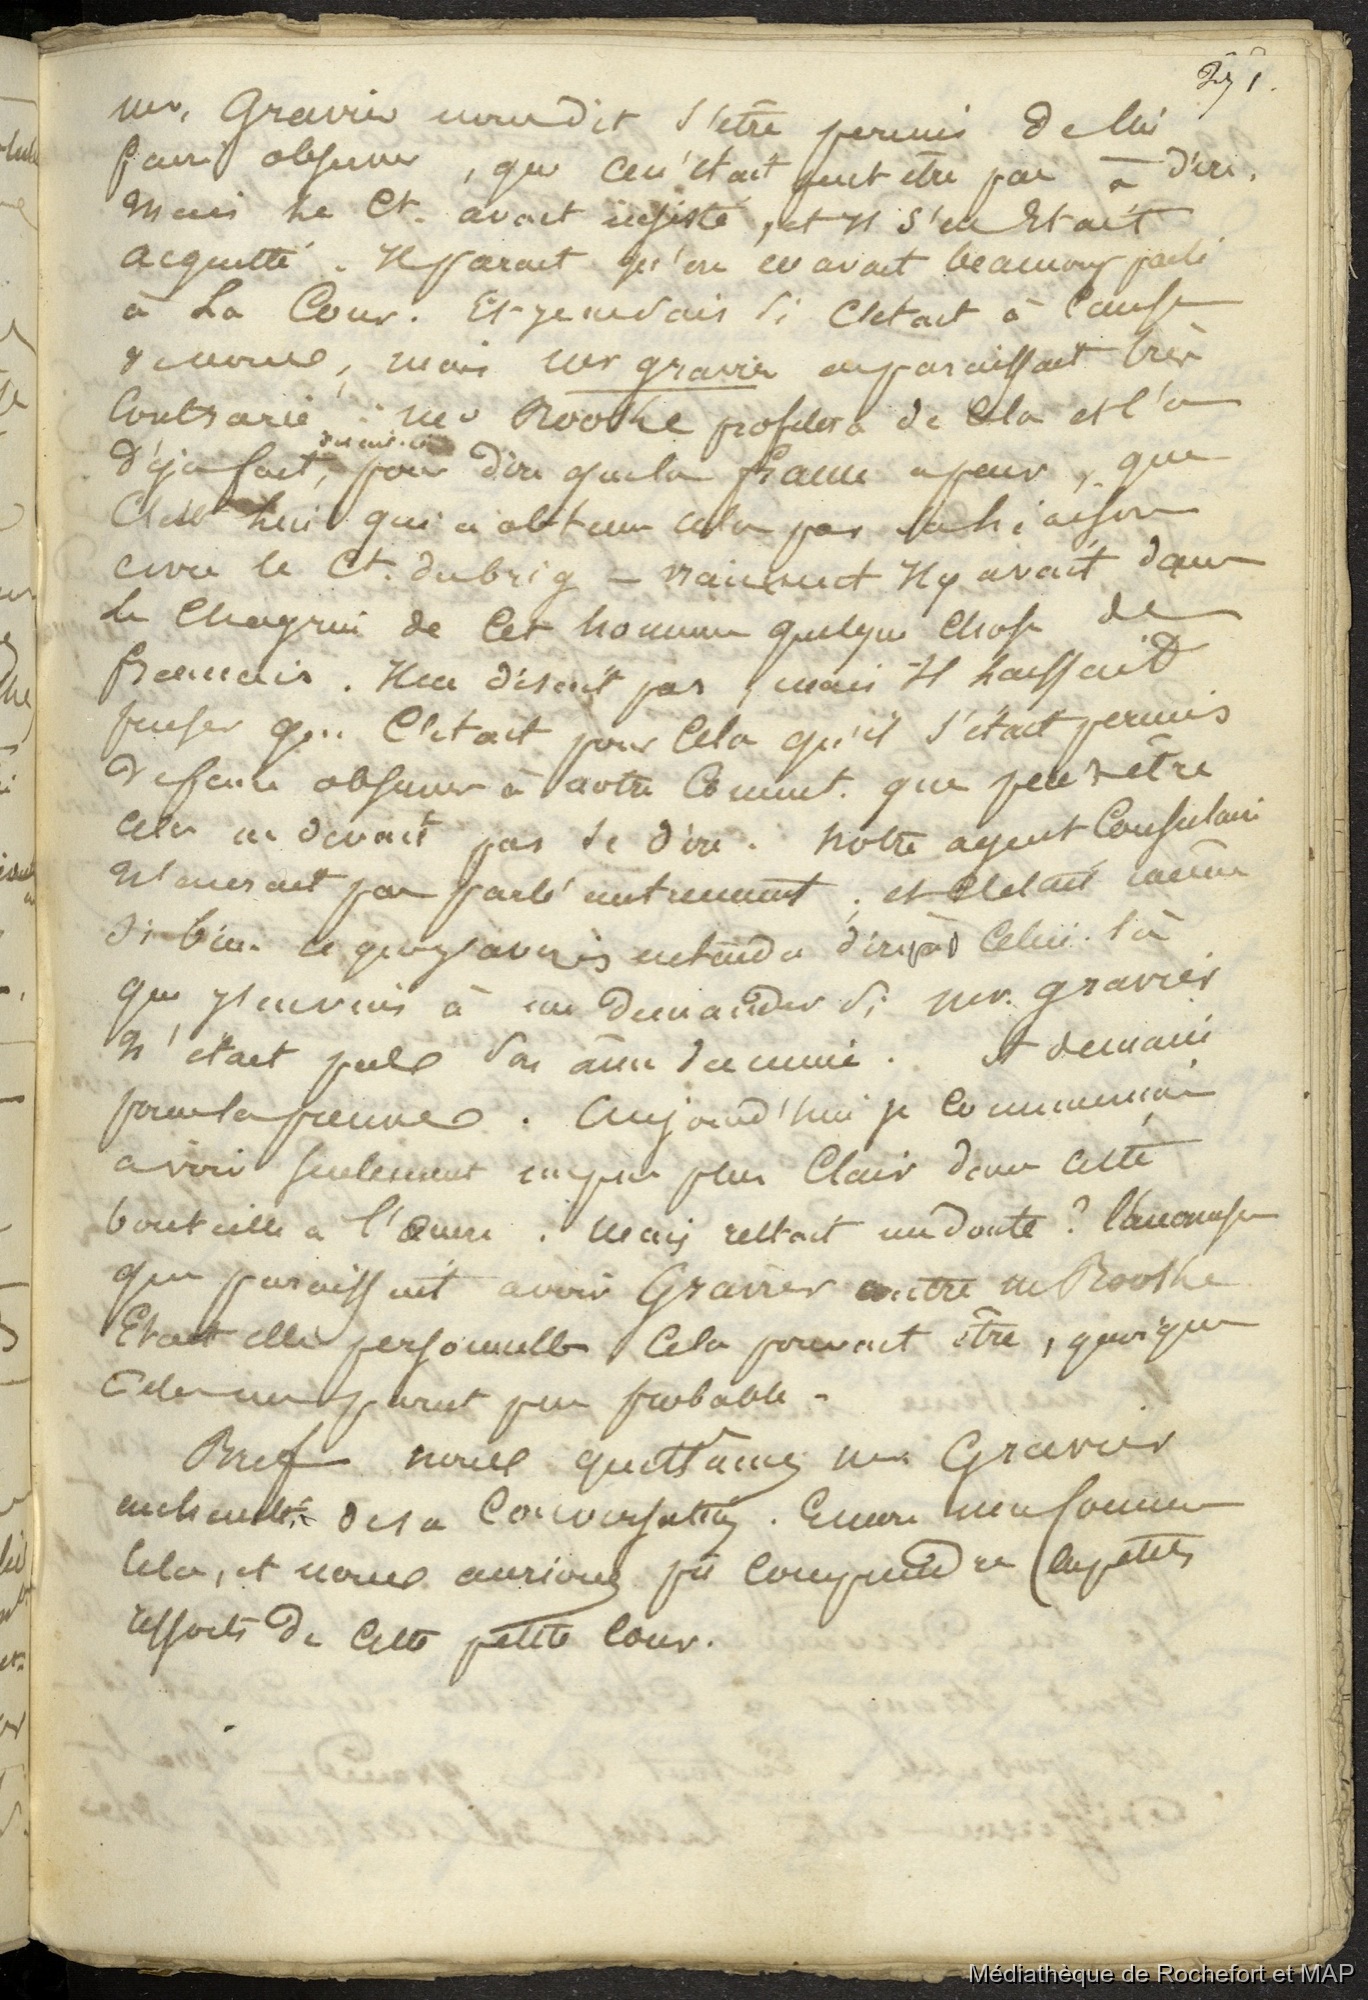 mr. Gravier nous dit s'être permis de lui
faire observer, que ce n'était peut être pas à dire.
Mais le Ct. avait insisté, et il s'en était
acquitté. Il parait qu'on en avait beaucoup parlé
à la Cour. Et je ne sais si c'était à cause
de nous, mais mr gravier en paraissait très
contrarié. mr Rooske profitera de cela et l'a
déjà fait, pour dire que la france a peur, que
C'est lui qui a obtenu cela par sa liaison
avec le Ct. du brig – vraiment il y avait dans
le chagrin de cet homme quelque chose de
français. Il ne disait pas, mais il laissait
penser que c'était pour cela qu'il s'était permis
de faire observer à notre Commt. que peut être
cela ne devait pas se dire. Notre agent Consulaire
n'aurait pas parlé autrement; et c'était même
si bien ce que j'avais entendu dire à celui là
que j'en vins à me demander si mr. gravier
n'était pas son âme damnée. A demain
pour la preuve. Aujourd'hui je commençais
à voir seulement un peu plus clair dans cette
bouteille à l'encre. Mais restait un doute?
que paraissait avoir Gravier contre m Rooske
Etait elle personnelle Cela pouvait être, quoique
cela me parut peu probable.
Bref nous quittames mr Gravier
enchantés de sa conversation. Encore une comme
cela, et nous aurions pû comprendre les petits
ressorts de cette petite Cour.
Médiathèque de Rochefort et MAP